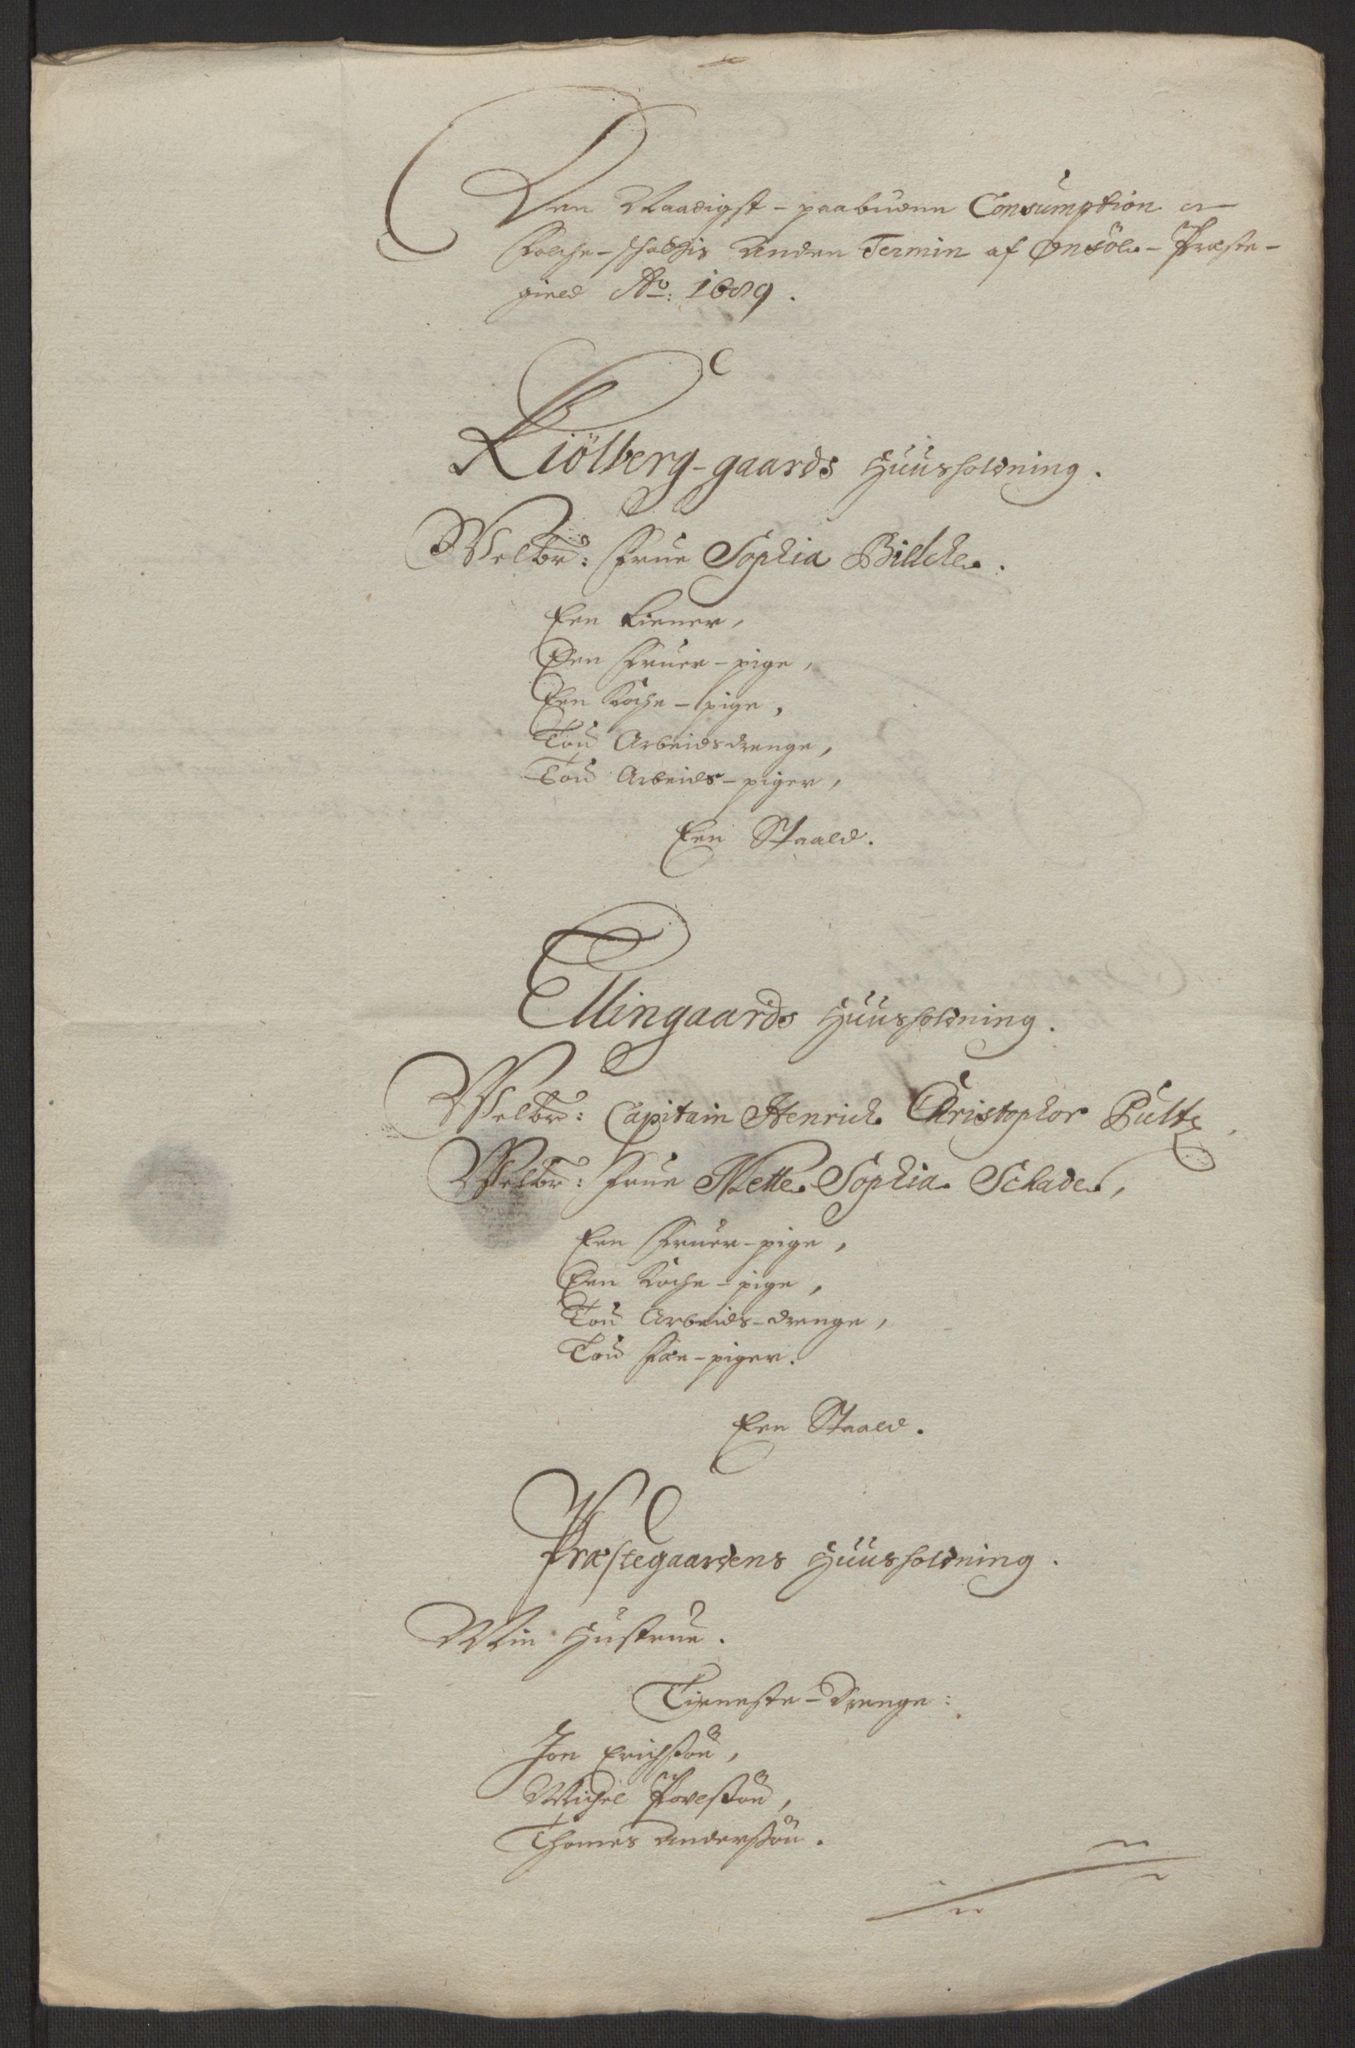 Den Naadigst-paabudne Consumption og
Folche-schattis Anden Termin af Onsöe-Præste-
gield Ao: 1689.
Kiölberg-gaards Huusholdning.
Welbr: Frue Sophia Bilche.
Een tiener,
Een Fruer-pige,
Een Koche-pige,
Tou Arbeidsdrenge,
Tou Arbeids-piger,
Een Staald.
Ellingaards Huusholdning.
Welbr: Capitain Henrich Christophor Pultz,
Welbr: Frue Mette Sophia Schade,
Een Fruer-pige,
Een Koche-pige,
Tou Arbeids-drenge,
Tou Fæ-piger.
Een Staald.
Præstegaardens Huusholdning.
Min Hustrue.
Tieneste-Drenge:
Jon Erichsøn,
Michel Povelsøn,
Thomes Andersøn.